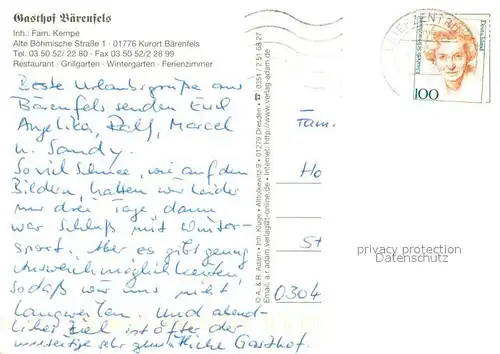 Gasthof Bärenfels
Inh.: Fam. Kempe
Alte Böhmische Straße 1 · 01776 Kurort Bärenfels
Tel. 03 50 52/ 22 80 · Fax 03 50 52/2 28 99
Restaurant · Grillgarten · Wintergarten · Ferienzimmer
Beste Urlaubsgrüße aus
Bärenfels senden Euch
Angelika, Ralf, Marcel
u. Sandy.
So viel Schnee, wie auf den
Bildern, hatten wir leider
nur drei Tage, dann
war Schluß mit Winter-
sport. Aber es gibt genug
Ausweichmöglichkeiten,
sodaß wir uns nicht
langweilen. Und abend-
liches Ziel ist öfter der
umseitige sehr gemütliche Gasthof.
© A. & R. Adam • Inh. Kluge • Altlokewitz 9 • 01279 Dresden • ☎ 0351 / 2 51 68 27
Email: a.r.adam.verlag@t-online.de • Internet: http://www.verlag-adam.de
Fam.
Ho
St
0304
Deutschland
100
privacy protection
Datenschutz